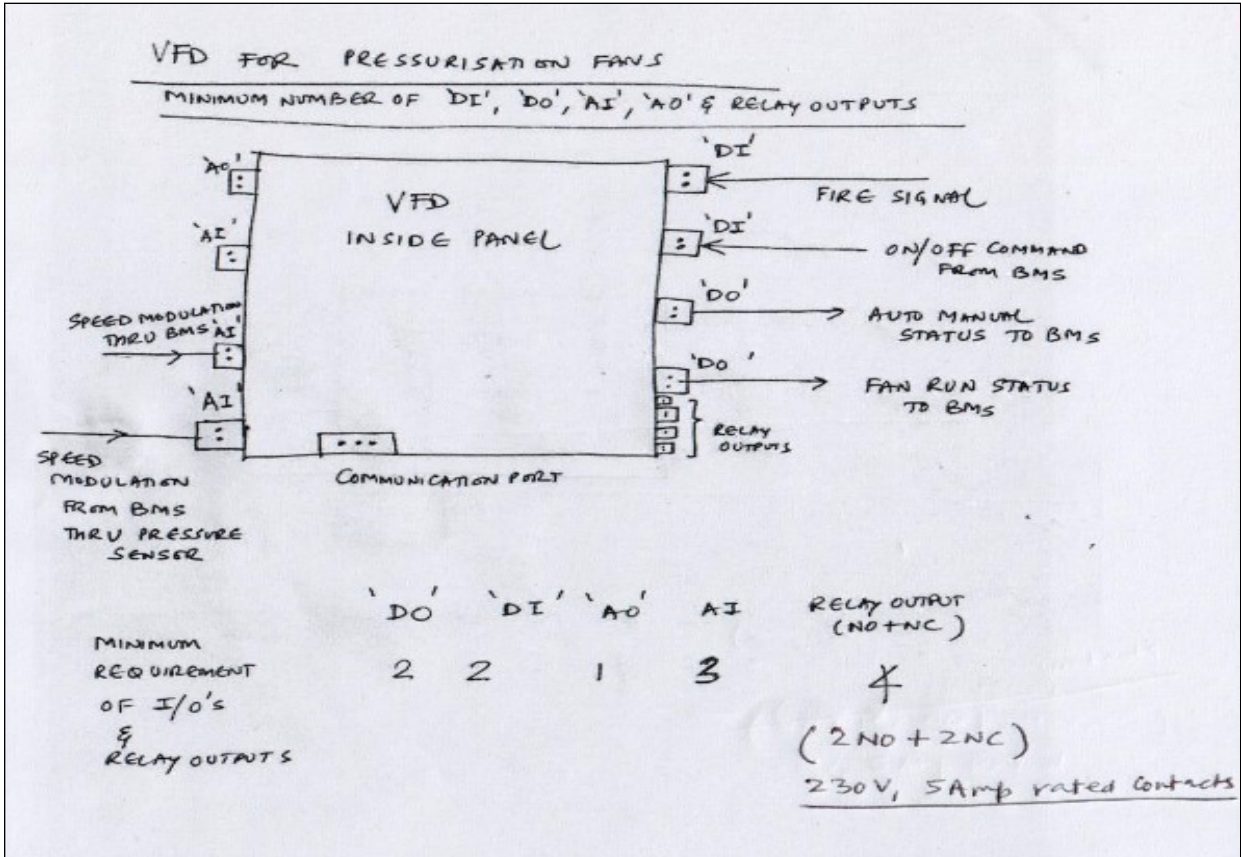 VFD FOR PRESSURISATION FANS
MINIMUM NUMBER OF 'DI', 'DO', 'AI', 'AO' & RELAY OUTPUTS
'AO'
'AI'
SPEED MODULATION
THRU BMS 'AI'
'AI'
SPEED
MODULATION
FROM BMS
THRU PRESSURE
SENSOR
VFD
INSIDE PANEL
COMMUNICATION PORT
'DI'
FIRE SIGNAL
'DI'
ON/OFF COMMAND
FROM BMS
'DO'
AUTO MANUAL
STATUS TO BMS
'DO'
FAN RUN STATUS
TO BMS
RELAY
OUTPUTS
'DO' 'DI' 'AO' AI RELAY OUTPUT
(NO+NC)
MINIMUM
REQUIREMENT 2 2 1 3 4
OF I/O'S
&
RELAY OUTPUTS
(2NO + 2NC)
230V, 5Amp rated Contacts